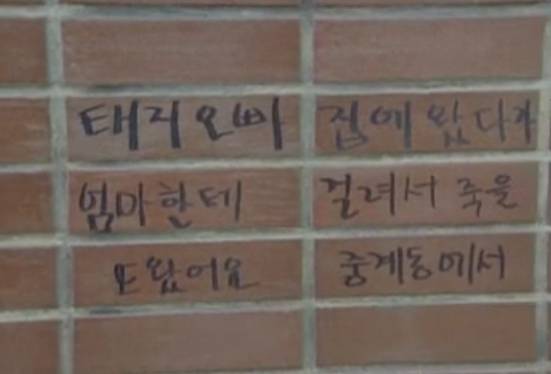 태지오빠 집에 왔다가
엄마한테 걸려서 죽을
또왔어요 중계동에서